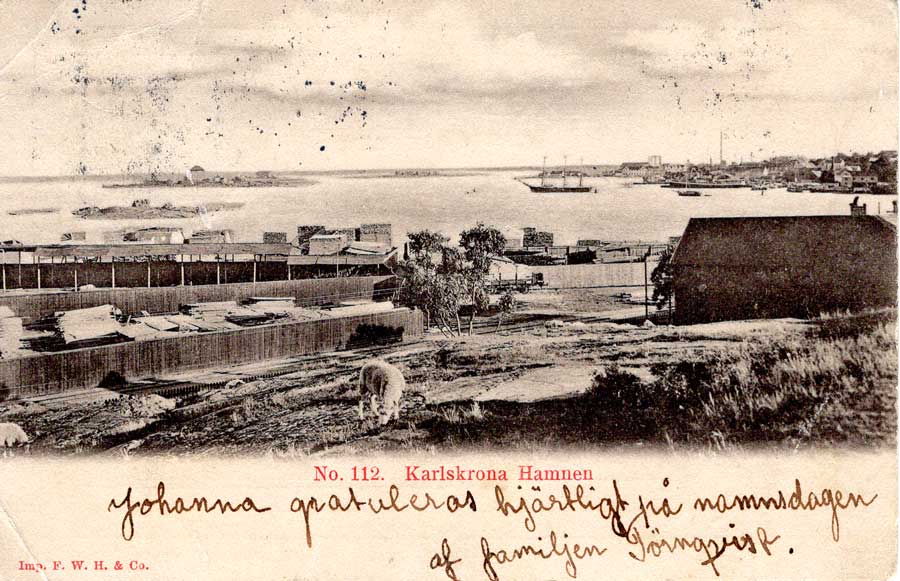 No. 112. Karlskrona Hamnen
Johanna gratuleras hjärtligt på namnsdagen
af familjen Törnqvist.
Imp. F. W. H. & Co.